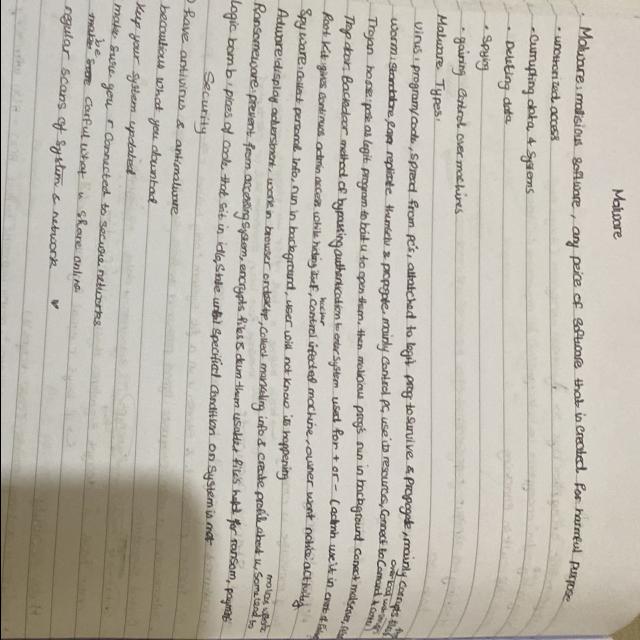 Malware
• Malware: malicious software, any peice of software that is created for harmful purpose
• unathorized access
• Currupting data & systems
• Deleting data
• Spying
• gaining Control over machines
Malware Types:
Virus: program/code, spread from PC's, attatched to legit prog to survive & propogate, mainly corrupts
worm: standalone, can replicate themselves & propogate, mainly control PC, use its resources,
Trojan horse: pose as legit program to bait u to open them, then malicious progs run in background
Trap door: Backdoor method of bypassing authentication to enter system used for + or -
Root Kit: gives continous admin access while hiding itself, control infected machine, owner wont notice activity
Spyware: collect personal info, run in background, user will not know its happening
Adware: display advertisment, work in browser, collect marketing info & create profile about u,
Ransomeware: prevent from accessing system, encrypts files & deny them usually, files held for ransom,
logic bomb: pices of code that sit in idle state until specified condition on system is met
Security
have antivirus & antimalware
becautious what you download
Keep your System updated
make sure you r connected to secure networks
be Carful what u share online
regular scans of system & network